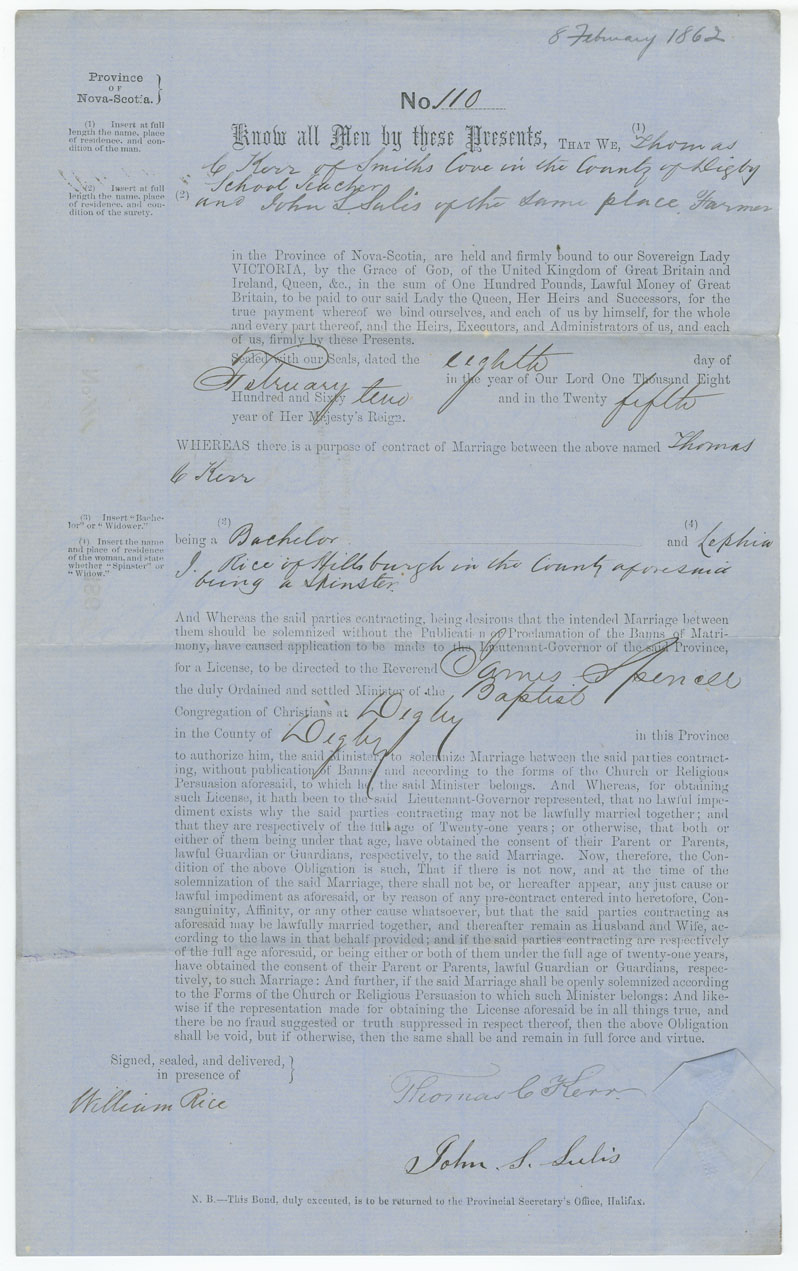 8 February 1862
Province
OF
Nova-Scotia.
No 110
(1) Insert at full
length the name, place
of residence, and con-
dition of the man.
Know all Men by these Presents, THAT WE, (1) Thomas
C Kerr of Smiths Cove in the County of Digby
School Teacher
(2) Insert at full
length the name, place
of residence, and con-
dition of the surety.
(2) and John S Sulis of the same place Farmer
in the Province of Nova-Scotia, are held and firmly bound to our Sovereign Lady
VICTORIA, by the Grace of GOD, of the United Kingdom of Great Britain and
Ireland, Queen, &c., in the sum of One Hundred Pounds, Lawful Money of Great
Britain, to be paid to our said Lady the Queen, Her Heirs and Successors, for the
true payment whereof we bind ourselves, and each of us by himself, for the whole
and every part thereof, and the Heirs, Executors, and Administrators of us, and each
of us, firmly by these Presents.
Sealed with our Seals, dated the eighth day of
February in the year of Our Lord One Thousand Eight
Hundred and Sixty two and in the Twenty fifth
year of Her Majesty's Reign.
WHEREAS there is a purpose of contract of Marriage between the above named Thomas
C Kerr
(3) Insert "Bache-
lor" or "Widower."
(4) Insert the name
and place of residence
of the woman, and state
whether "Spinster" or
"Widow."
(3) (4)
being a Bachelor and Zephia
J. Rice of Hillsburgh in the County aforesaid
being a Spinster.
And Whereas the said parties contracting, being desirous that the intended Marriage between
them should be solemnized without the Publication of Proclamation of the Banns of Matri-
mony, have caused application to be made to the Lieutenant-Governor of the said Province,
for a License, to be directed to the Reverend James Spencer
the duly Ordained and settled Minister of the Baptist
Congregation of Christians at Digby
in the County of Digby in this Province
to authorize him, the said Minister, to solemnize Marriage between the said parties contract-
ing, without publication of Banns, and according to the forms of the Church or Religious
Persuasion aforesaid, to which he, the said Minister belongs. And Whereas, for obtaining
such License, it hath been to the said Lieutenant-Governor represented, that no lawful impe-
diment exists why the said parties contracting may not be lawfully married together; and
that they are respectively of the full age of Twenty-one years; or otherwise, that both or
either of them being under that age, have obtained the consent of their Parent or Parents,
lawful Guardian or Guardians, respectively, to the said Marriage. Now, therefore, the Con-
dition of the above Obligation is such, That if there is not now, and at the time of the
solemnization of the said Marriage, there shall not be, or hereafter appear, any just cause or
lawful impediment as aforesaid, or by reason of any pre-contract entered into heretofore, Con-
sanguinity, Affinity, or any other cause whatsoever, but that the said parties contracting as
aforesaid may be lawfully married together, and thereafter remain as Husband and Wife, ac-
cording to the laws in that behalf provided; and if the said parties contracting are respectively
of the full age aforesaid, or being either or both of them under the full age of twenty-one years,
have obtained the consent of their Parent or Parents, lawful Guardian or Guardians, respec-
tively, to such Marriage: And further, if the said Marriage shall be openly solemnized according
to the Forms of the Church or Religious Persuasion to which such Minister belongs: And like-
wise if the representation made for obtaining the License aforesaid be in all things true, and
there be no fraud suggested or truth suppressed in respect thereof, then the above Obligation
shall be void, but if otherwise, then the same shall be and remain in full force and virtue.
Signed, sealed, and delivered,
in presence of
William Rice
Thomas C Kerr
John. S. Sulis
N. B.—This Bond, duly executed, is to be returned to the Provincial Secretary's Office, Halifax.